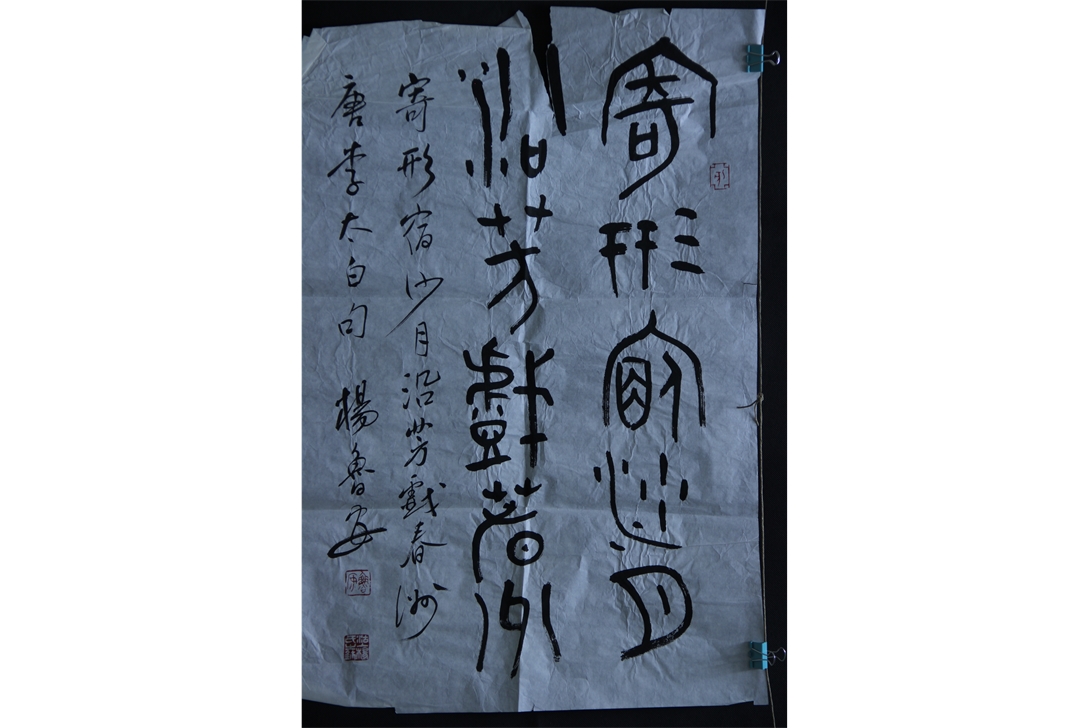 寄形宿沙月
沿芳戲春洲
寄形宿沙月沿芳戲春洲
唐李太白句 楊魯安